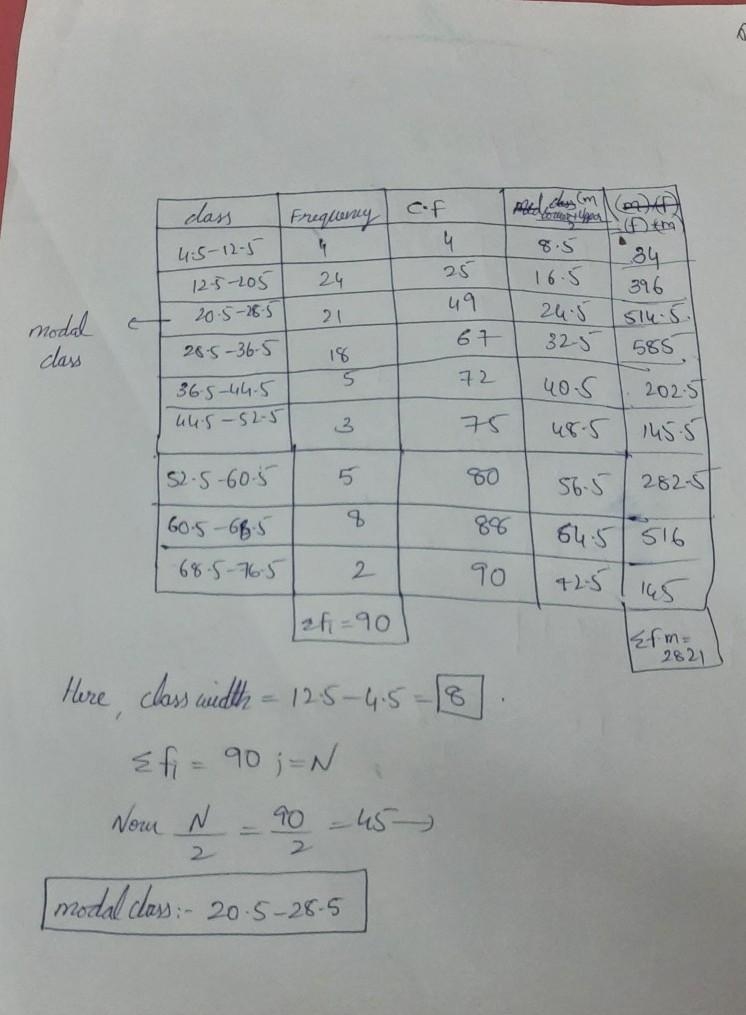 class Frequency C.f class (m (f) (m
4.5-12.5 4 4 8.5 34
12.5-20.5 24 25 16.5 396
modal class ← 20.5-28.5 21 49 24.5 514.5
28.5-36.5 18 67 32.5 585
36.5-44.5 5 72 40.5 202.5
44.5-52.5 3 75 48.5 145.5
52.5-60.5 5 80 56.5 282.5
60.5-68.5 8 88 64.5 516
68.5-76.5 2 90 72.5 145
Σfi = 90 Σfm = 2821
Here, class width = 12.5-4.5 = 8.
Σfi = 90 ;=N
Now N/2 = 90/2 = 45→
modal class:- 20.5-28.5